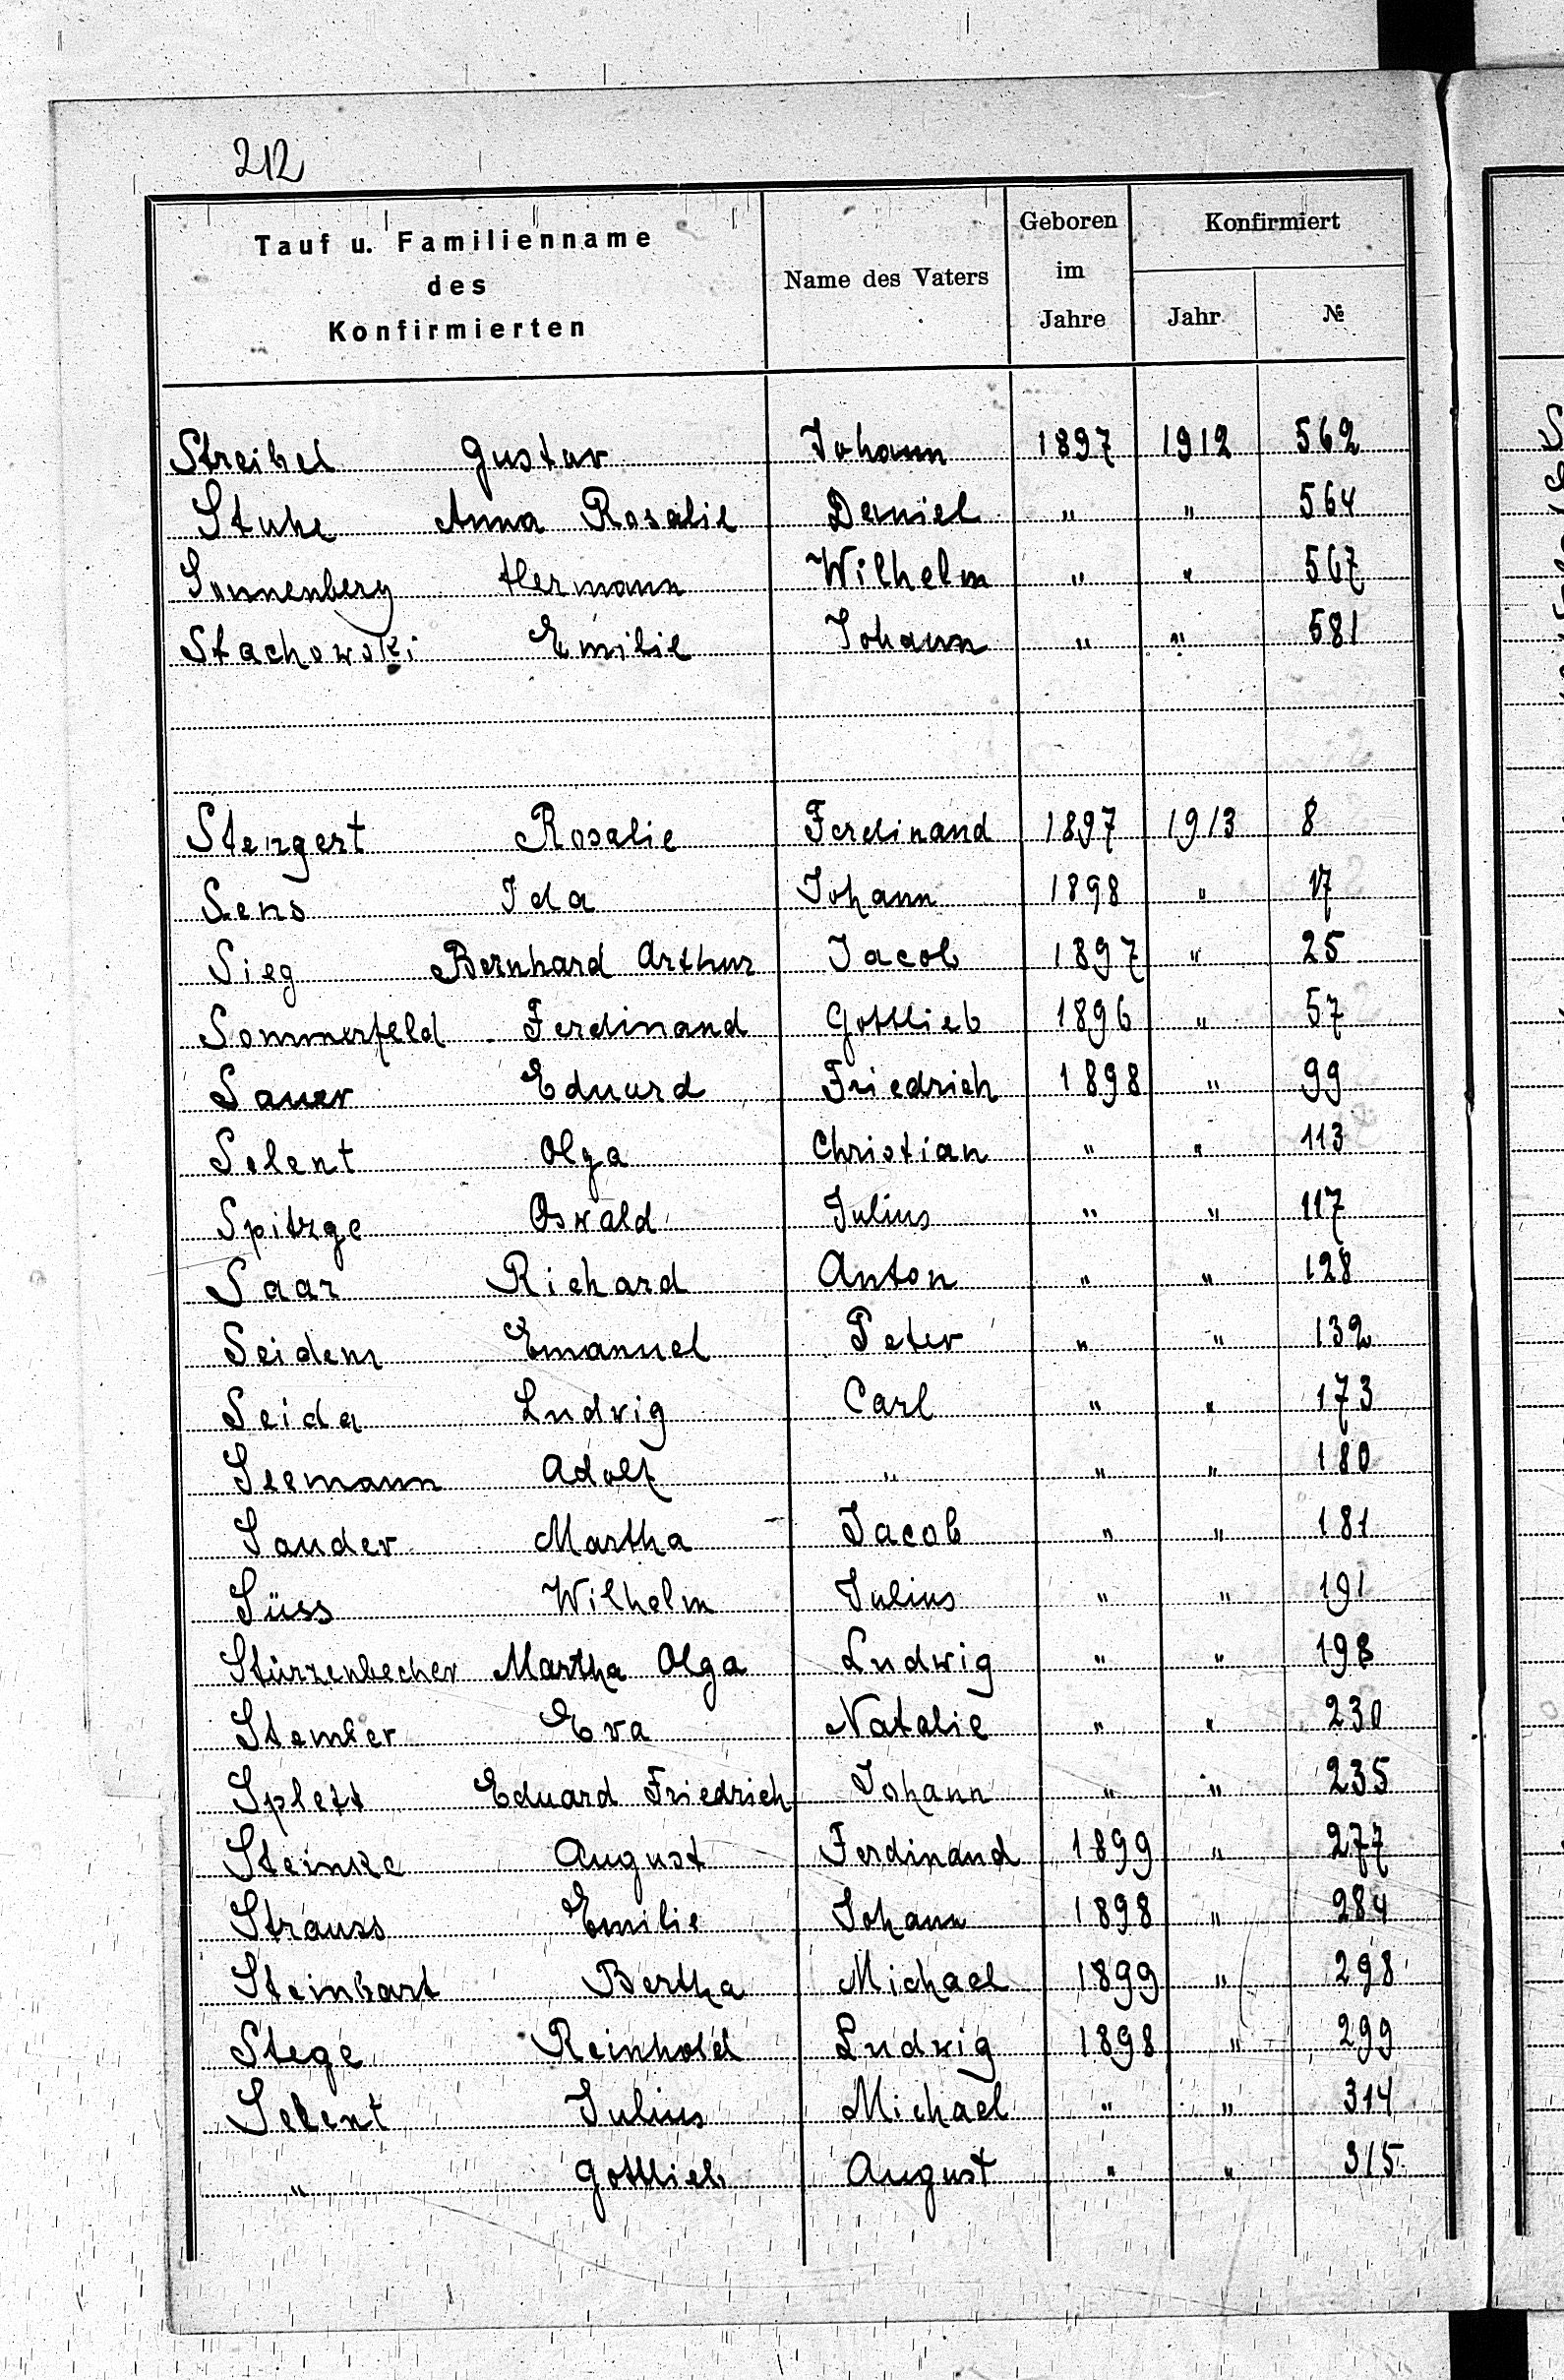 212
Tauf u. Familienname des Konfirmierten Name des Vaters Geboren im Jahre Konfirmiert Jahr №
Streibel Gustav Johann 1897 1912 562
Stuhe Anna Rosalie Daniel " " 564
Sonnenberg Hermann Wilhelm " " 567
Stachowski Emilie Johann " " 581
Stengert Rosalie Ferdinand 1897 1913 8
Sens Ida Johann 1898 " 17
Sieg Bernhard Arthur Jacob 1897 " 25
Sommerfeld Ferdinand Gottlieb 1896 " 57
Sauer Eduard Friedrich 1898 " 99
Selent Olga Christian " " 113
Spitzge Oswald Julius " " 117
Saar Richard Anton " " 128
Seidem Emanuel Peter " " 132
Seida Ludwig Carl " " 173
Seemann Adolf " " " 180
Sauder Martha Jacob " " 181
Süss Wilhelm Julius " " 191
Stürzenbecher Martha Olga Ludwig " " 198
Stember Eva Natalie " " 230
Splett Eduard Friedrich Johann " " 235
Steinke August Ferdinand 1899 " 277
Strauss Emilie Johann 1898 " 284
Steinbart Bertha Michael 1899 " 298
Stege Reinhold Ludwig 1898 " 299
Selent Julius Michael " " 314
" Gottlieb August " " 315